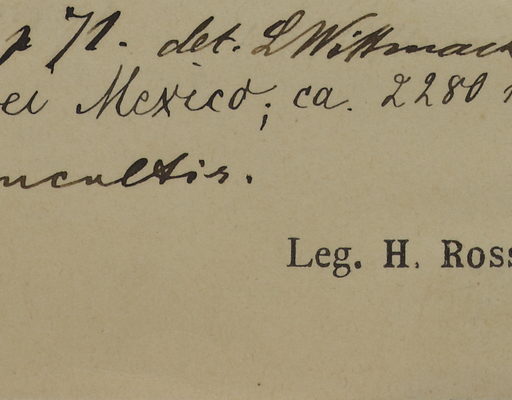 p 71. det. L Wittmack
ei Mexico; ca. 2280
incultis.
Leg. H. Ross